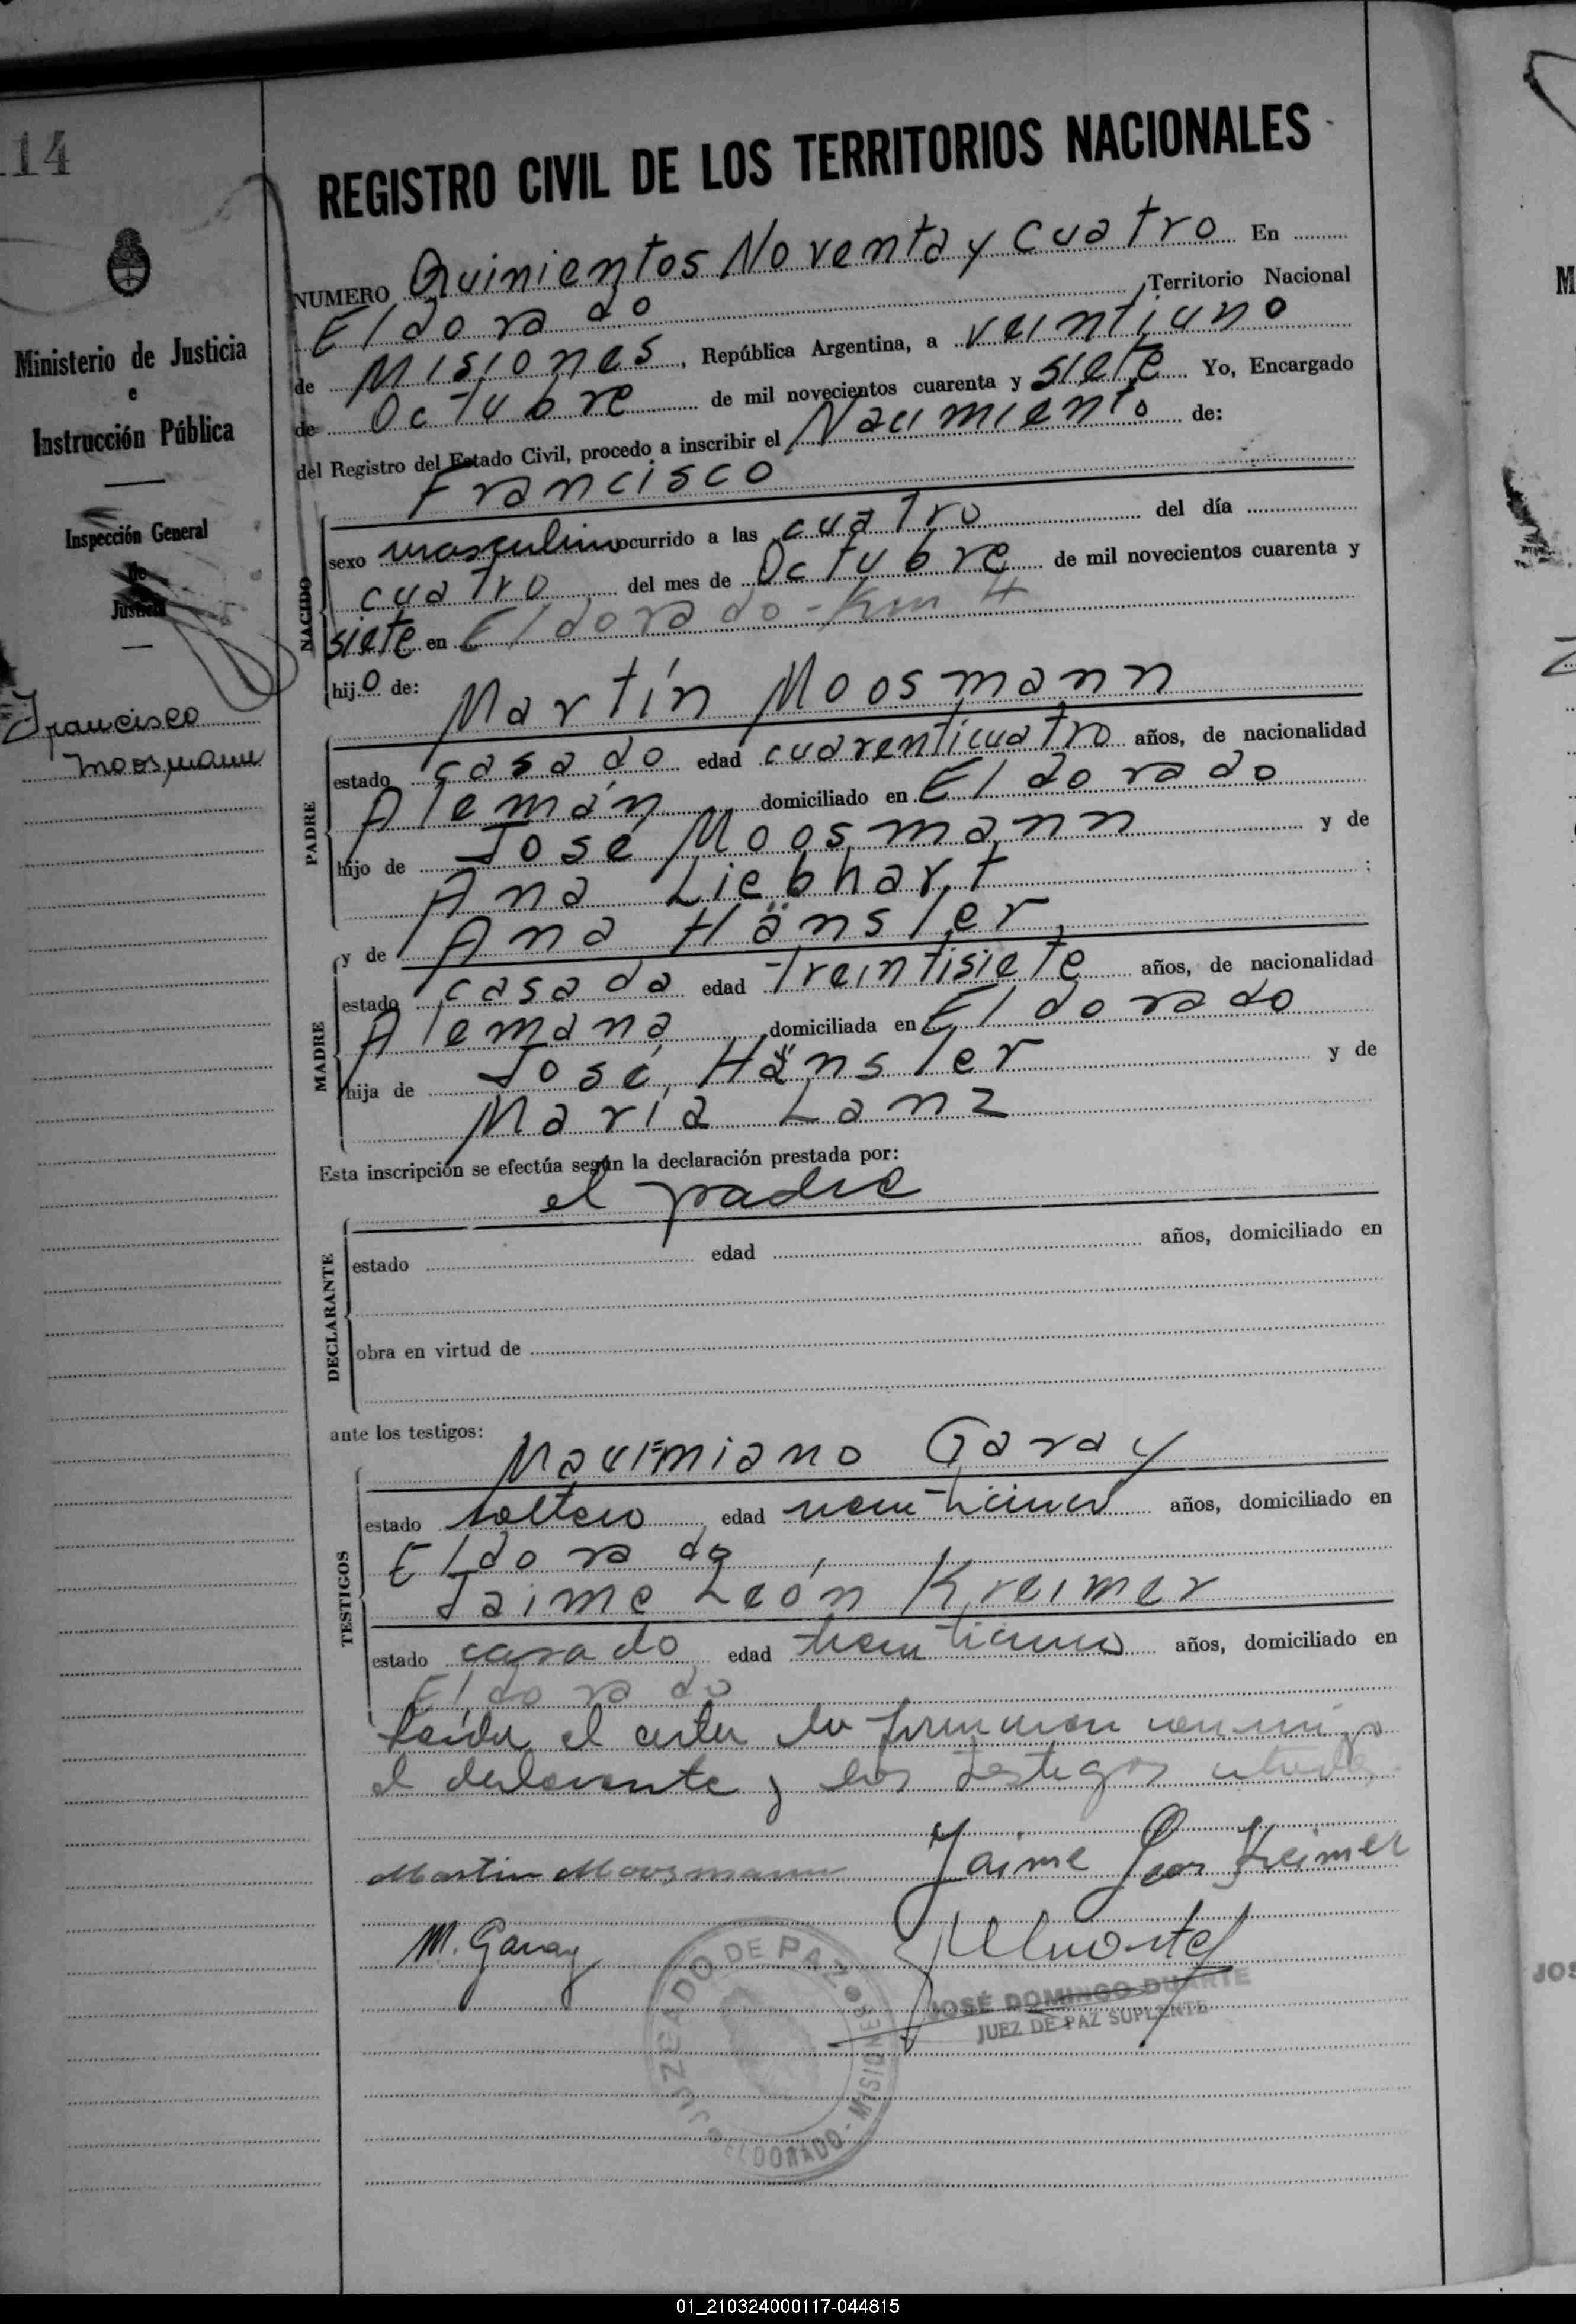 114
REGISTRO CIVIL DE LOS TERRITORIOS NACIONALES
NUMERO Quinientos Noventa y cuatro En
Eldorado , Territorio Nacional
de Misiones, República Argentina, a veintiuno
de Octubre de mil novecientos cuarenta y siete Yo, Encargado
del Registro del Estado Civil, procedo a inscribir el Nacimiento de:
Francisco
NACIDO
sexo masculino ocurrido a las cuatro del día
cuatro del mes de Octubre de mil novecientos cuarenta y
siete en Eldorado - Km 4
hijo de: Martín Moosmann
PADRE
estado casado edad cuarenticuatro años, de nacionalidad
Alemán domiciliado en Eldorado
hijo de José Moosmann y de
Ana Liebhart ;
y de Ana Hänsler
MADRE
estado casada edad treintisiete años, de nacionalidad
Alemana domiciliada en Eldorado
hija de José Hänsler y de
María Lanz
Esta inscripción se efectúa según la declaración prestada por:
el padre
DECLARANTE
estado edad años, domiciliado en
obra en virtud de
ante los testigos:
Garay
TESTIGOS
estado soltero edad años, domiciliado en
Eldorado
Jaime León Kreimer
estado casado edad treinticinco años, domiciliado en
Eldorado
Leída el acta la firmaron conmigo
el declarante y los testigos
Martin Moosmann
Jaime Leon Kreimer
M. Garay
JOSÉ DOMINGO DUARTE
JUEZ DE PAZ SUPLENTE
JUZGADO DE PAZ
ELDORADO - MISIONES
Ministerio de Justicia
e
Instrucción Pública
Inspección General
de
Justicia
Francisco
Moosmann
M
JOS
01_210324000117-044815